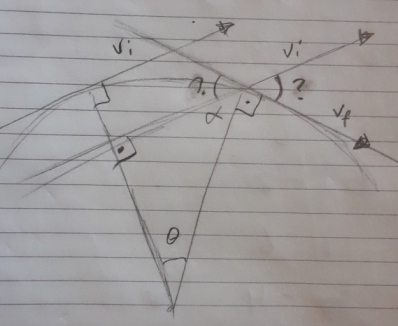 vi
vi
?
?
vf
α
θ